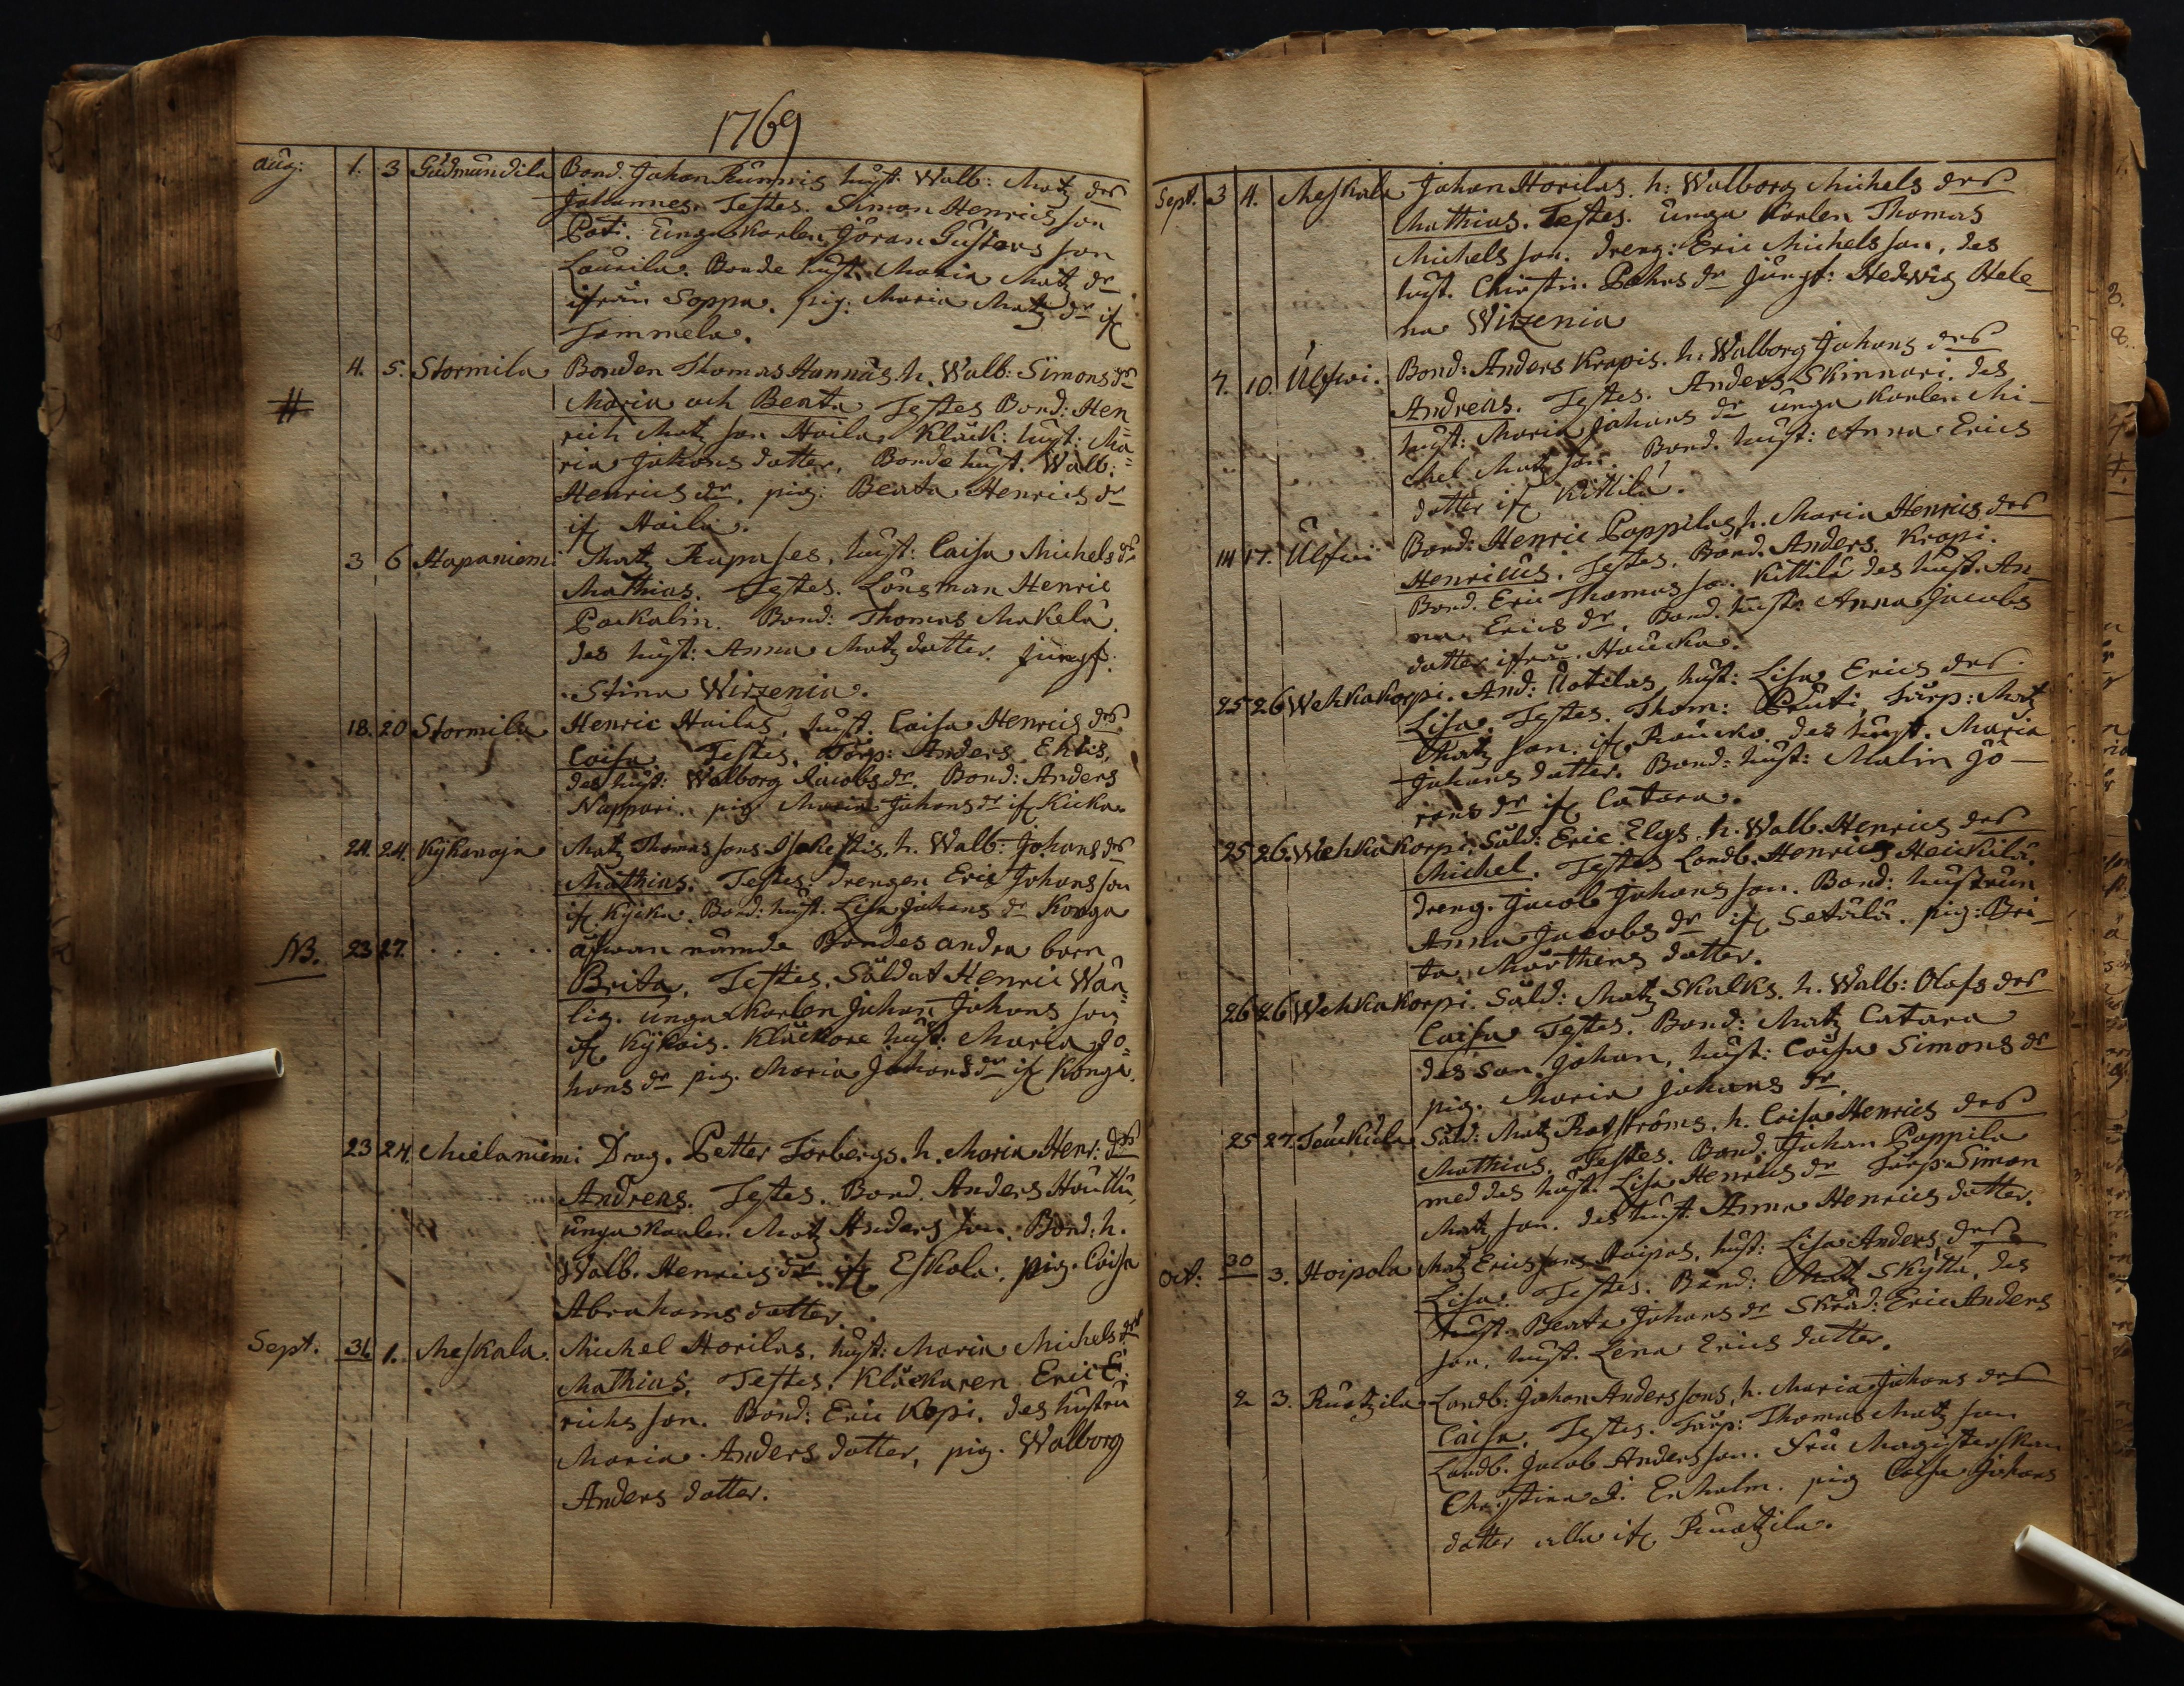 1769
Aug: 1. 3 Gudmundila Bond. Johan Runnis hust. Walb: Matz drs
Johannes. Testes. Simon Henrics son
Pati. Unga Karlen Jöran Gustavs son
Laurila. Bonde hust. Maria Matz dr
ifrån Soppa. pig. Maria Matz dr if
Tommela.
# 4. 5. Stormila Bonden Thomas Hannus. h. Walb: Simons dr
Maria och Beata Testes Bond: Hen
rich Matz son Haila, Klåck: hust: Ma=
ria Johans dotter, Bonde hust. Walb:
Henrics dr. pig: Beata Henrics dr
if Haila.
3 6 Hapaniemi Matz Rapases, hust: Caisa Michels dr
Mathias. Testes. Länsman Henric
Packalin. Bond: Thomas Makelä.
des hust: Anna Matz dotter. jungf:
Stina Wirzenia.
18. 20 Stormila Henric Hailas, hust. Caisa Henrics drs
Caisa Testes, Torp: Anders Ehlis,
des hust: Walborg Jacobs dr. Bond: Anders
Nappari. pig Maria Johans dr if Kicka.
24. 24. Kykenoja Matz Thomas sons Isokestis. h. Walb: Johans drs
Mathias. Testes: Drengen Eric Johans son
if Kycka. Bond: hust. Lisa Johans dr Konga
NB. 23 27. . . . . åfwan nämde Bondes andra barn
Brita, Testes, Såldat Henric Wän=
lig. unga Karlen Johan Johans son
if Kykois. Klåckare hust: Maria Jo=
hans dr pig. Maria Johans dr if Konga.
23 24. Mielaniemi Drag. Petter Torbergs. h. Maria Henr: drs
Andreas. Testes. Bond. Anders Houttu,
unga Karlen Matz Anders son. Bond: h.
Walb. Henrics dr if Eskola. pig. Caisa
Abrahams dotter.
Sept. 31. 1. Meskala. Michel Horilas, hust: Maria Michels drs
Mathias, Testes. Klåckaren Eric E:
richs son. Bond: Eric Kopi. des hustru
Maria Anders dotter, pig. Walborg
Anders dotter.
Sept. 3 4. Meskala Johan Horilas. h: Walborg Michels drs
Mathias. Testes. unga Karlen Thomas
Michels son. Dreng: Eric Michels son, des
hust. Christin dr jungf: Hedwig Hele
na Wirzenia
7. 10. Ulfwi. Bond: Anders Krapis. h: Walborg Johans drs
Andreas. Testes. Anders Skinnari. des
hust: Maria Johans dr unga Karlen Mi-
chel Matz son. Bond. hust: Anna Erics
dotter if Kittilä.
14 17. Ulfwi Bond: Henric Pappilas, h. Maria Henrics drs
Henricus. Testes. Bond. Anders Krapi.
Bond. Eric Thomas son Kittilä des hust. An
na Erics dr, Bond. hust: Anna Jacobs
dotter ifrån Haucka.
25 26 Wehkakorpi. And: Uotilas hust: Lisa Erics drs
Lisa. Testes. Thom: Pruti, Tårp: Matz
Matz son if Raucko. des hust. Maria
Johans dotter. Bond: hust: Malin Jö
rans dr if Catara.
25 26. Wehkakorpi. Såld: Eric Elgs. h. Walb. Henrics drs
Michel. Testes Landb. Henric Heickilä.
Dreng. Jacob Johans son. Bond: hustrun
Anna Jacobs dr if Setälä. pig: Bri
ta Mårthens dotter.
26 26 Wehkakorpi. Såld: Matz Skalks. h. Walb: Olofs drs
Caisa Testes. Bond: Matz Catara
des son Johan, hust: Caisa Simons dr
pig. Maria Johans dr.
25 27. Teuckula Såld: Matz Rotströms. h. Caisa Henrics drs
Mathias. Testes. Bond: Johan Pappila
med des hust. Lisa Henrics dr Tårp: Simon
Matz son. des hust. Anna Henrics dotter.
Oct: 30 3. Hoipola Matz Erics sons Raipas, hust: Lisa Anders drs
Lisa. Testes. Bond: Matz Skyttä, des
hust. Beata Johans dr Skräd: Eric Anders
son, hust. Lena Erics dotter.
2 3. Ruotzila Landb: Johan Anders sons, h. Maria Johans drs
Caisa. Testes. Tårp: Thomas Matz son
Landb. Jacob Anders son. Fru Magisterskan
Christina J. Enholm. pig Caisa Johans
dotter alla if Ruotzila.